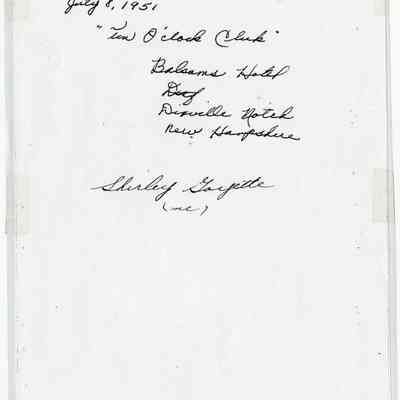 July 8, 1951
"Ten O'clock Club"
Balsams Hotel
Dixville Notch
New Hampshire
Shirley Goyette
(me)